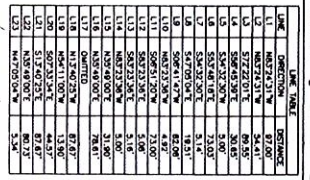 LINE TABLE
LINE DIRECTION DISTANCE
L1 N83°24'31"W 97.00'
L2 N83°24'31"W 54.41'
L3 S77°22'01"E 89.55'
L4 S66°45'39"E 30.45'
L5 S31°48'18"E 72.03'
L6 S54°32'30"E 5.14'
L7 S47°05'04"E 19.51'
L8 N06°41'47"W 82.08'
L9
L10 N83°23'36"W 4.92'
L11 S06°51'20"W 23.00'
L12 S83°23'36"E 5.08'
L13 S83°23'36"E 5.16'
L14 N83°23'36"W 5.00'
L15 N35°49'00"E 31.90'
L16 N35°49'00"E 78.61'
L17 OMITTED
L18 N13°40'25"W 87.67'
L19 N54°11'00"W 13.90'
L20 S07°33'34"E 44.57'
L21 S13°40'25"E 87.67'
L22 N35°49'00"E 80.73'
L23 N47°05'04"W 5.34'